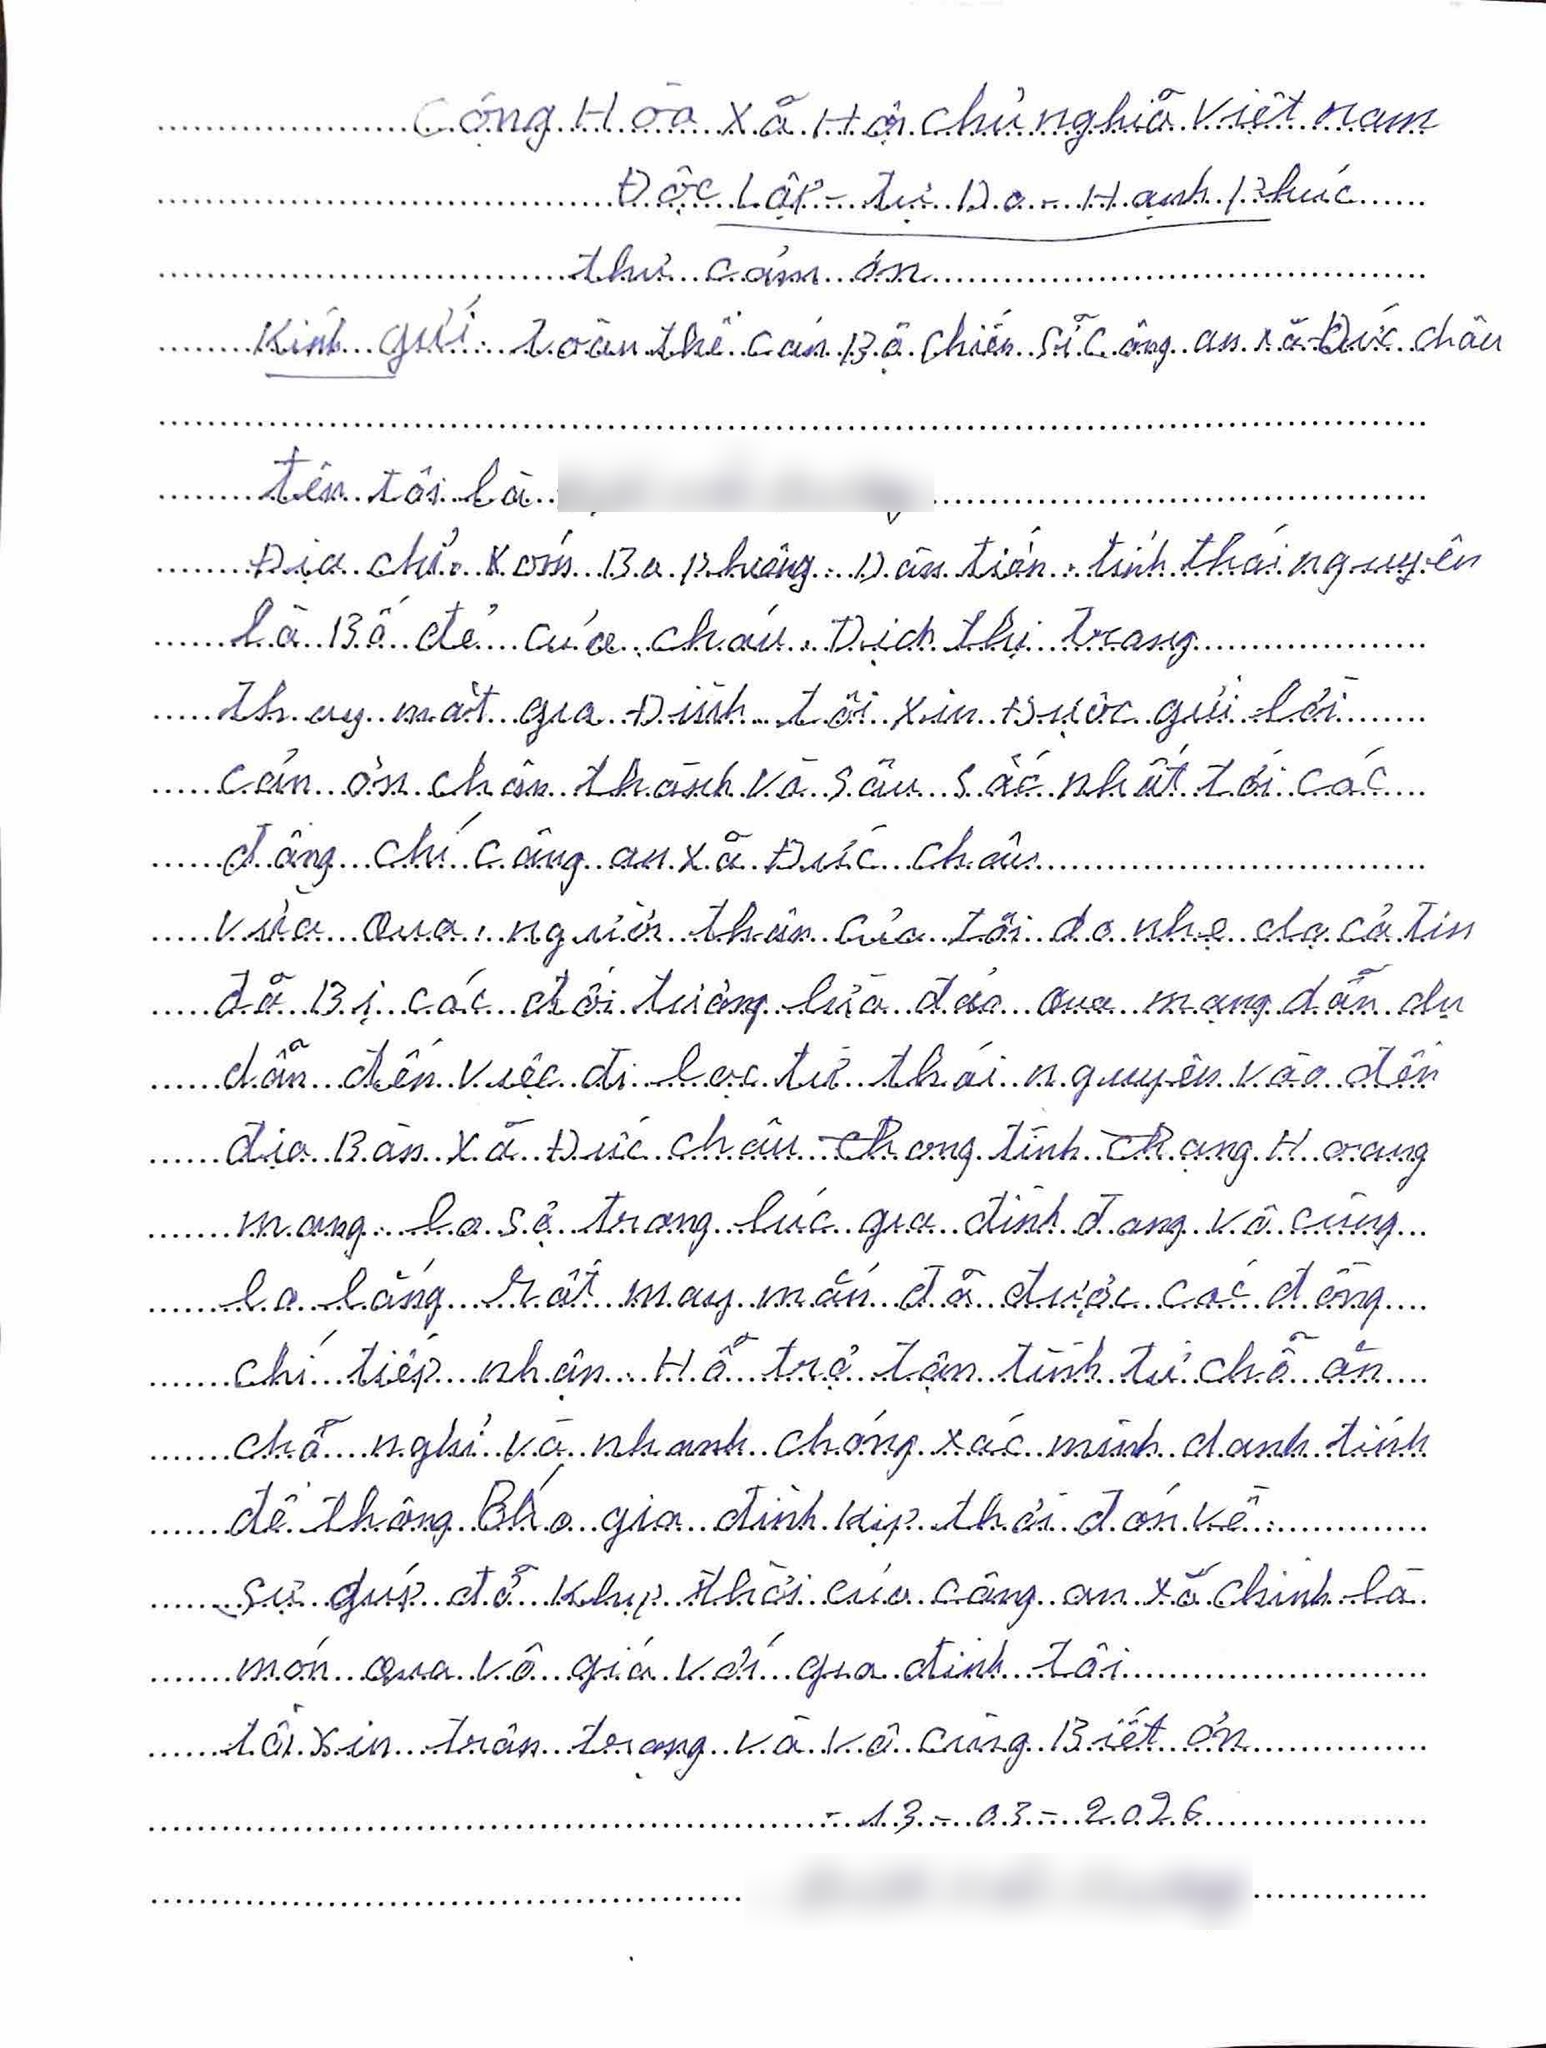 Cộng Hòa Xã Hội chủ nghĩa Việt nam
Độc Lập - tự Do - Hạnh Phúc
thư cảm ơn
Kính gửi. toàn thể cán Bộ chiến sĩ Công an xã Đức châu
tên tôi là
Địa chỉ. xóm Ba phường. Dân tiến. tỉnh thái nguyên
là Bố đẻ của cháu. Dịch thị trang
thay mặt gia Đình tôi xin Được gửi lời
cản ơn chân thành và sâu sắc nhất tới các
đồng chí công an xã Đức châu
vừa qua, người thân của tôi do nhẹ dạ cả tin
đã Bị các đối tượng lừa đảo qua mạng dẫn dụ
dẫn đến việc đi lạc từ thái nguyên vào đến
địa Bàn xã Đức châu chong tình chạng Hoang
mang. lo sợ trong lúc gia đình đang vô cùng
lo lắng rất may mắn đã được các đồng
chí tiếp nhận. Hỗ trợ tận tình từ chỗ ăn
chỗ nghỉ và nhanh chóng xác minh danh tính
để thông Báo gia đình kịp thời đón về.
sự giúp đỡ khịp thời của công an xã chính là
món qua vô giá với gia đình tôi
tôi xin trân trọng và vô cùng Biết ơn
- 13 - 03 - 2026